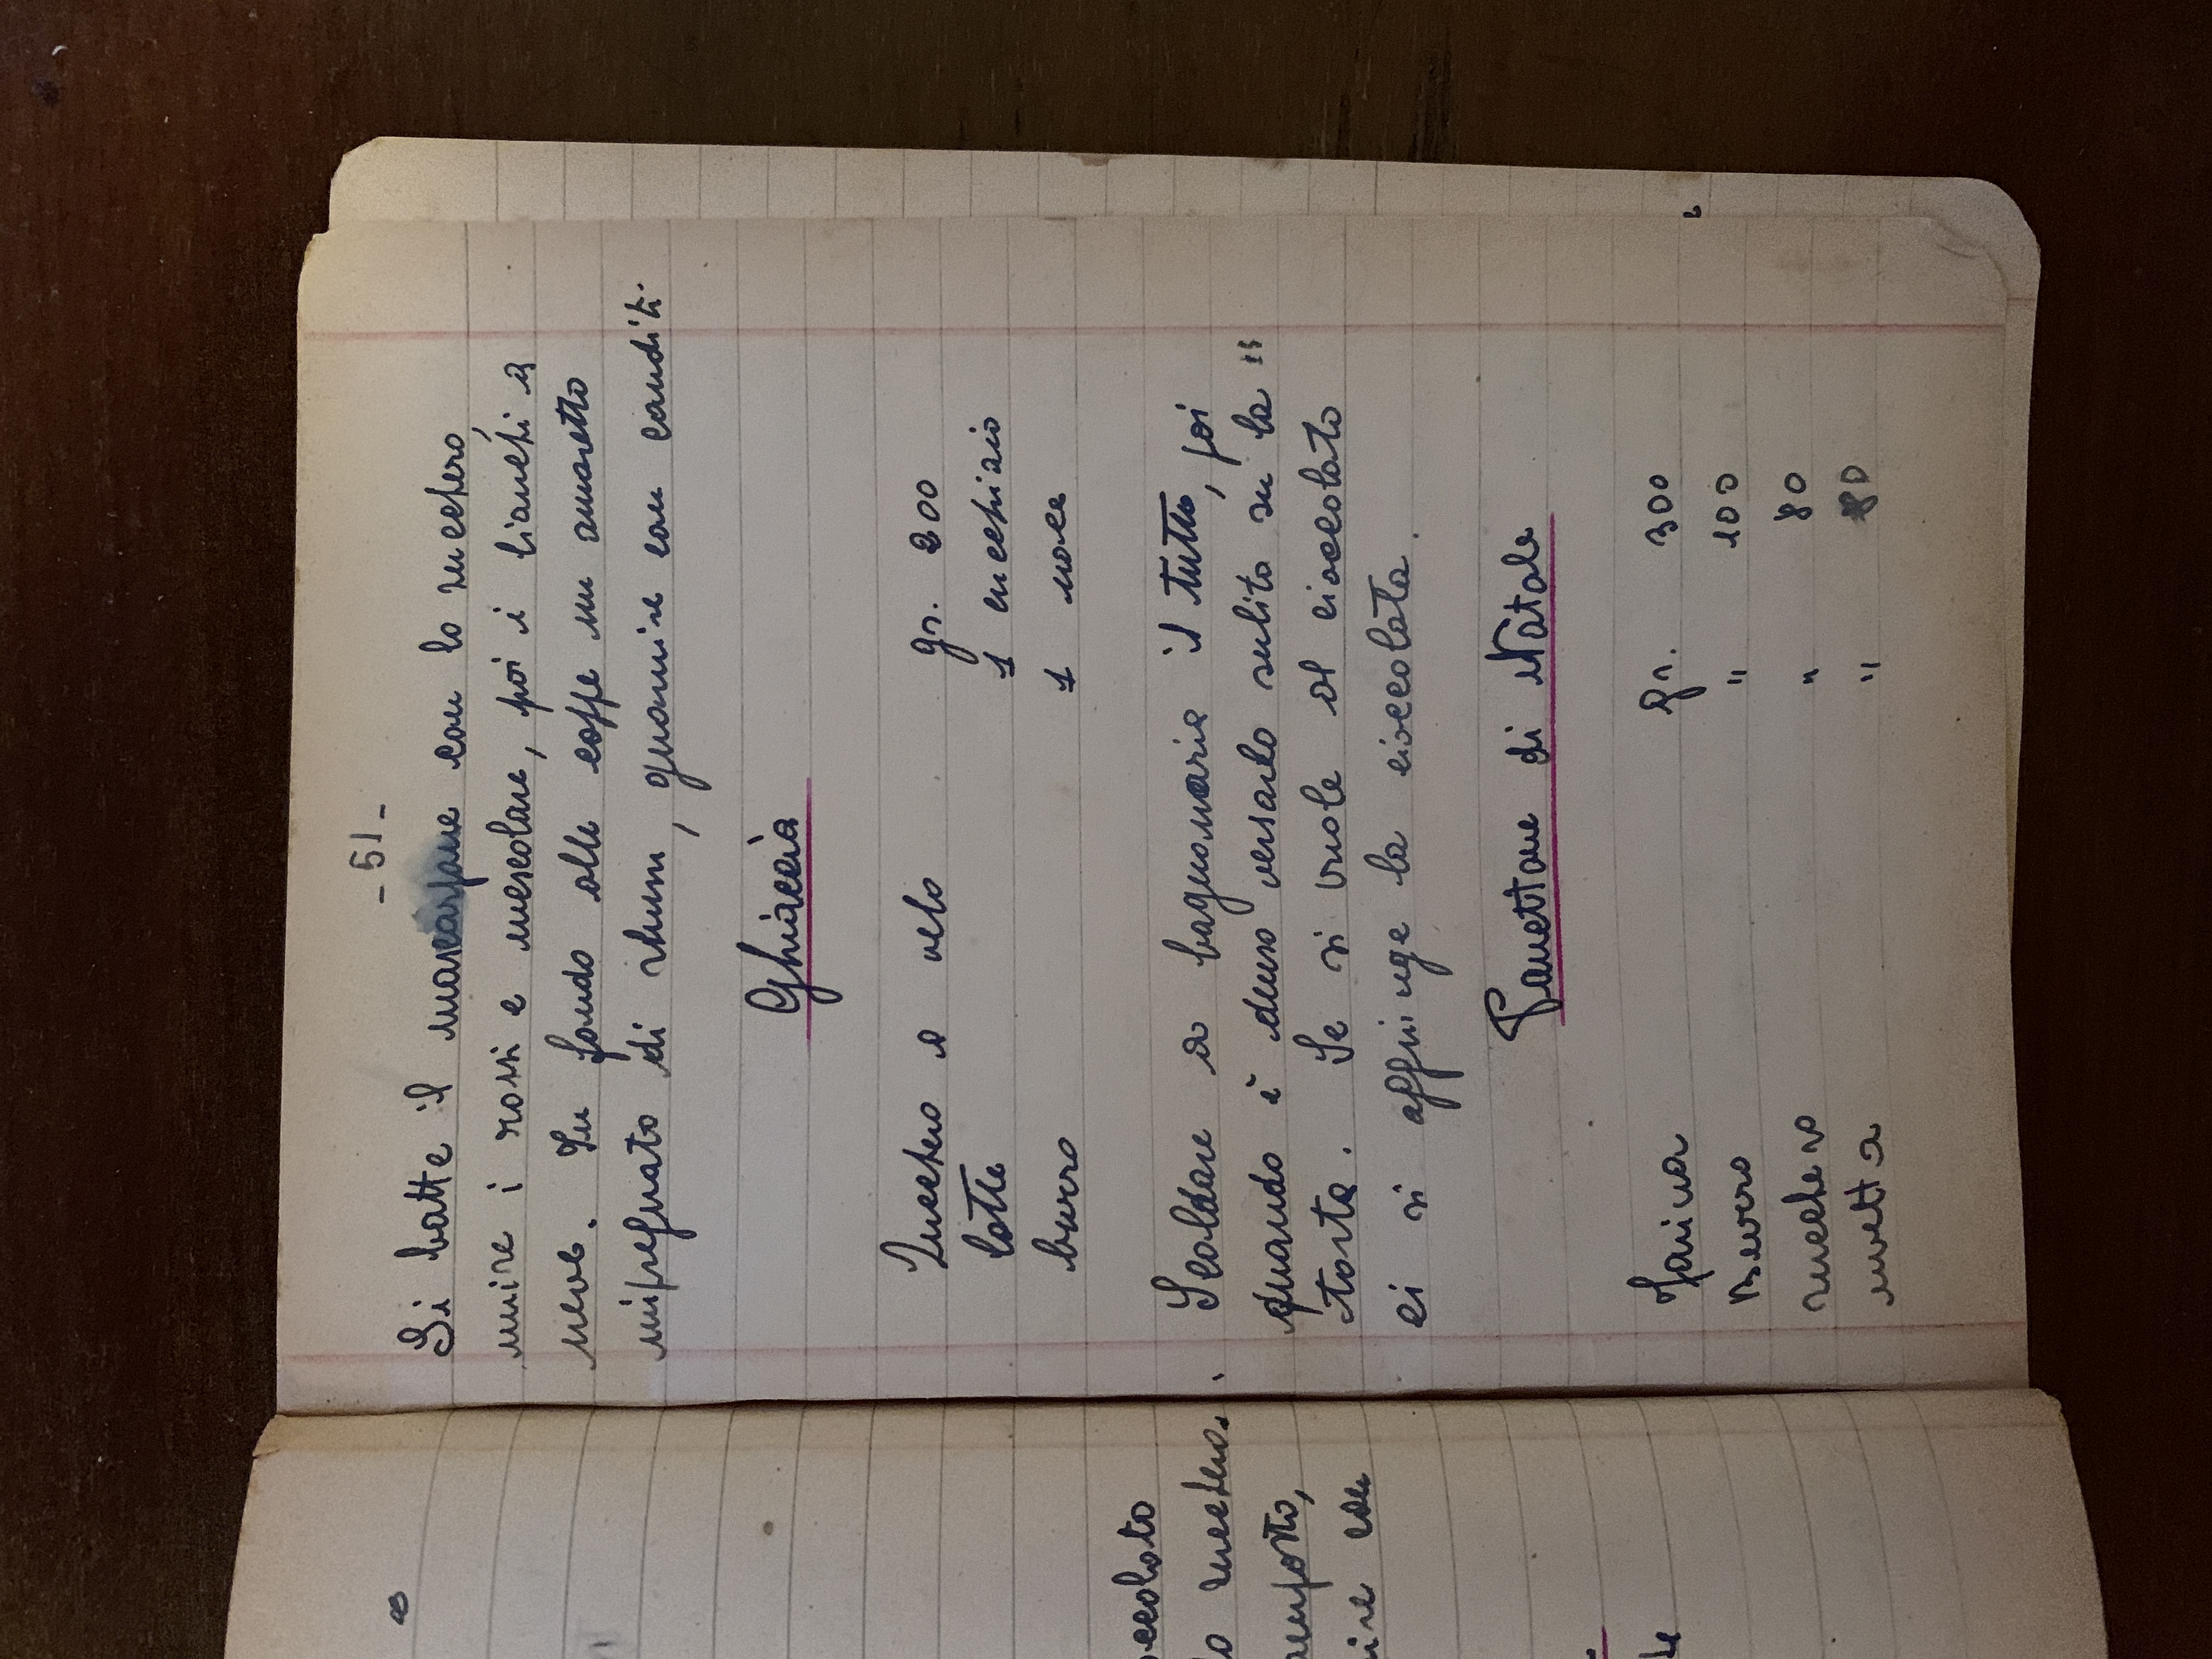 - 51 -
Si batte il mascarpone con lo zucchero,
unire i rossi e mescolare, poi i bianchi a
neve. In fondo alle coppe un amaretto
impregnato di rhum, guarnire con canditi.
Ghiaccia
Zucchero a velo gr. 200
latte 1 cucchiaio
burro 1 noce
Scaldare a bagnomaria il tutto, poi
quando è denso versarlo subito su la
torta. Se si vuole al cioccolato
ci si aggiunge la cioccolata.
Panettone di Natale
Farina gr. 300
Burro " 100
zucchero " 80
uvetta " 80
occolato
lo zucchero.
composto,
con